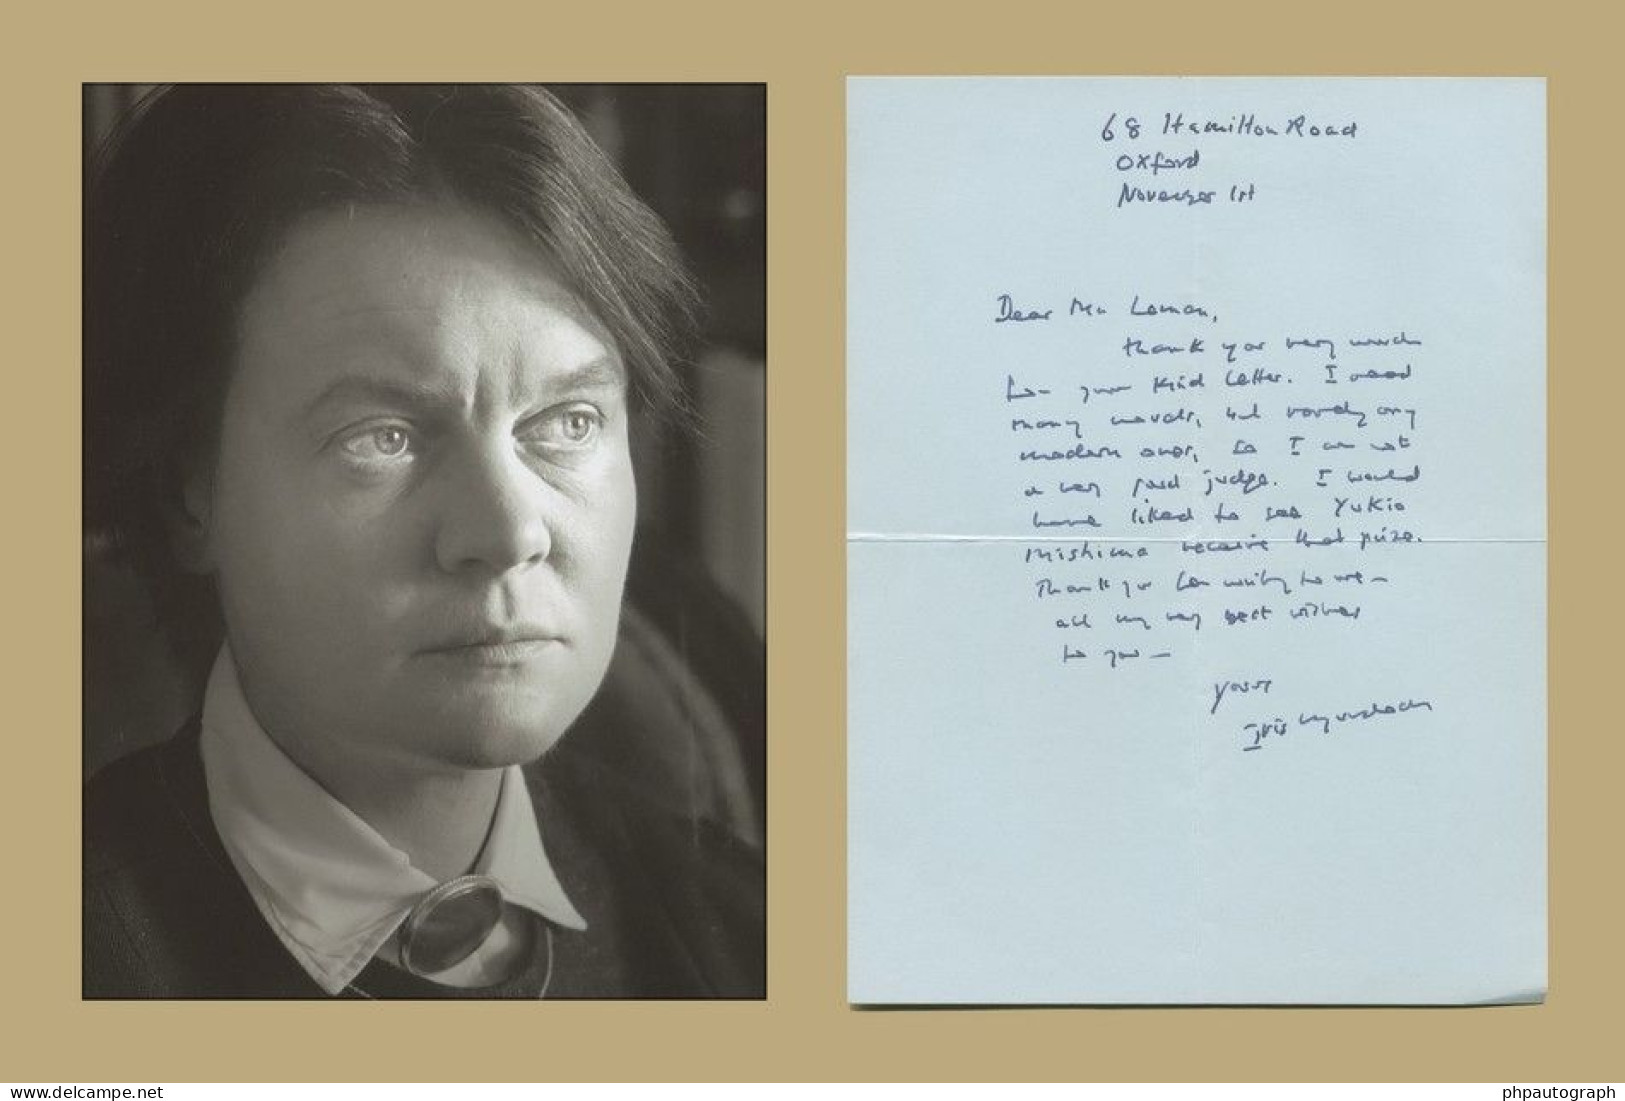 68 Hamilton Road
Oxford
November 1st
Dear Mr Loman,
thank you very much
for your kind letter. I read
many novels, but rarely any
modern ones, so I am not
a very good judge. I would
have liked to see Yukio
Mishima receive that prize.
Thank you for writing to me –
all my very best wishes
to you –
yours
Iris Murdoch
www.delcampe.net
phpautograph